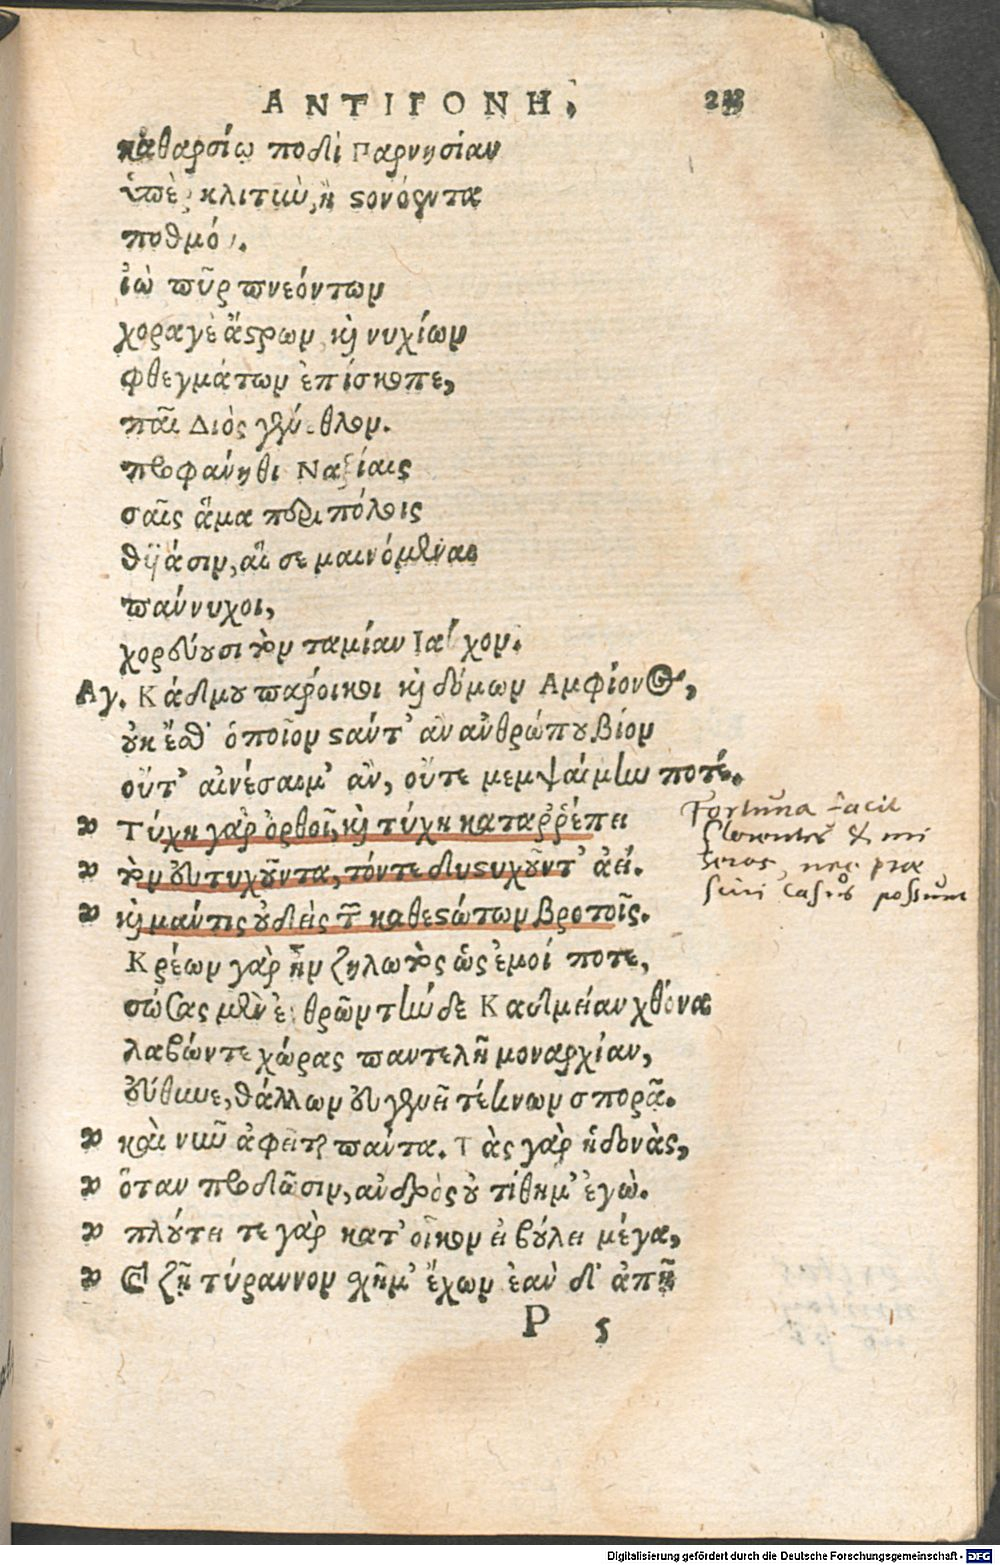 ΑΝΤΙΓΟΝΗ,
καθαρσίῳ ποδὶ Παρνησίαν
ὑπὲρ κλιτιὺ, ἢ στονόεντα
πορθμόν.
ἰὼ πῦρ πνεόντων
χοραγὲ ἄστρων, καὶ νυχίων
φθεγμάτων ἐπίσκοπε,
παῖ Διὸς γένεθλον.
προφάνηθι Ναξίαις
σαῖς ἅμα περιπόλοις
θϋάσιν, αἵ σε μαινόμεναι
πάννυχοι,
χορεύουσι τὸν ταμίαν Ἰακχον.
Αγ. Κάδμου πάροικοι καὶ δόμων Αμφίονος,
οὐκ ἔσθ' ὁποῖον στάντ' ἂν ἀνθρώπου βίον
οὔτ' αἰνέσαιμ' ἂν, οὔτε μεμψαίμην ποτέ.
Τύχη γὰρ ὀρθοῖ, καὶ τύχη καταῤῥέπει
τὸν εὐτυχοῦντα, τόν τε δυστυχοῦντ' ἀεί.
καὶ μάντις οὐδεὶς τῶν καθεστώτων βροτοῖς.
Κρέων γὰρ ἦν ζηλωτὸς ὡς ἐμοί ποτε,
σώσας μὲν ἐχθρῶν τήνδε Καδμείαν χθόνα
λαβών τε χώρας παντελῆ μοναρχίαν,
εὔθυνε, θάλλων εὐγενεῖ τέκνων σπορᾷ.
καὶ νῦν ἀφεῖται πάντα. Τὰς γὰρ ἡδονὰς,
ὅταν προδῶσιν, ἀνδρὸς οὐ τίθημ' ἐγὼ.
πλούτει τε γὰρ κατ' οἶκον εἰ βούλει μέγα,
καὶ ζῆ τύραννον σχῆμ' ἔχων ἐὰν δ' ἀπῇ
P 5
Fortuna facit
florentes & mi
seros, nec prae
sciri casus possunt
Digitalisierung gefördert durch die Deutsche Forschungsgemeinschaft - DFG